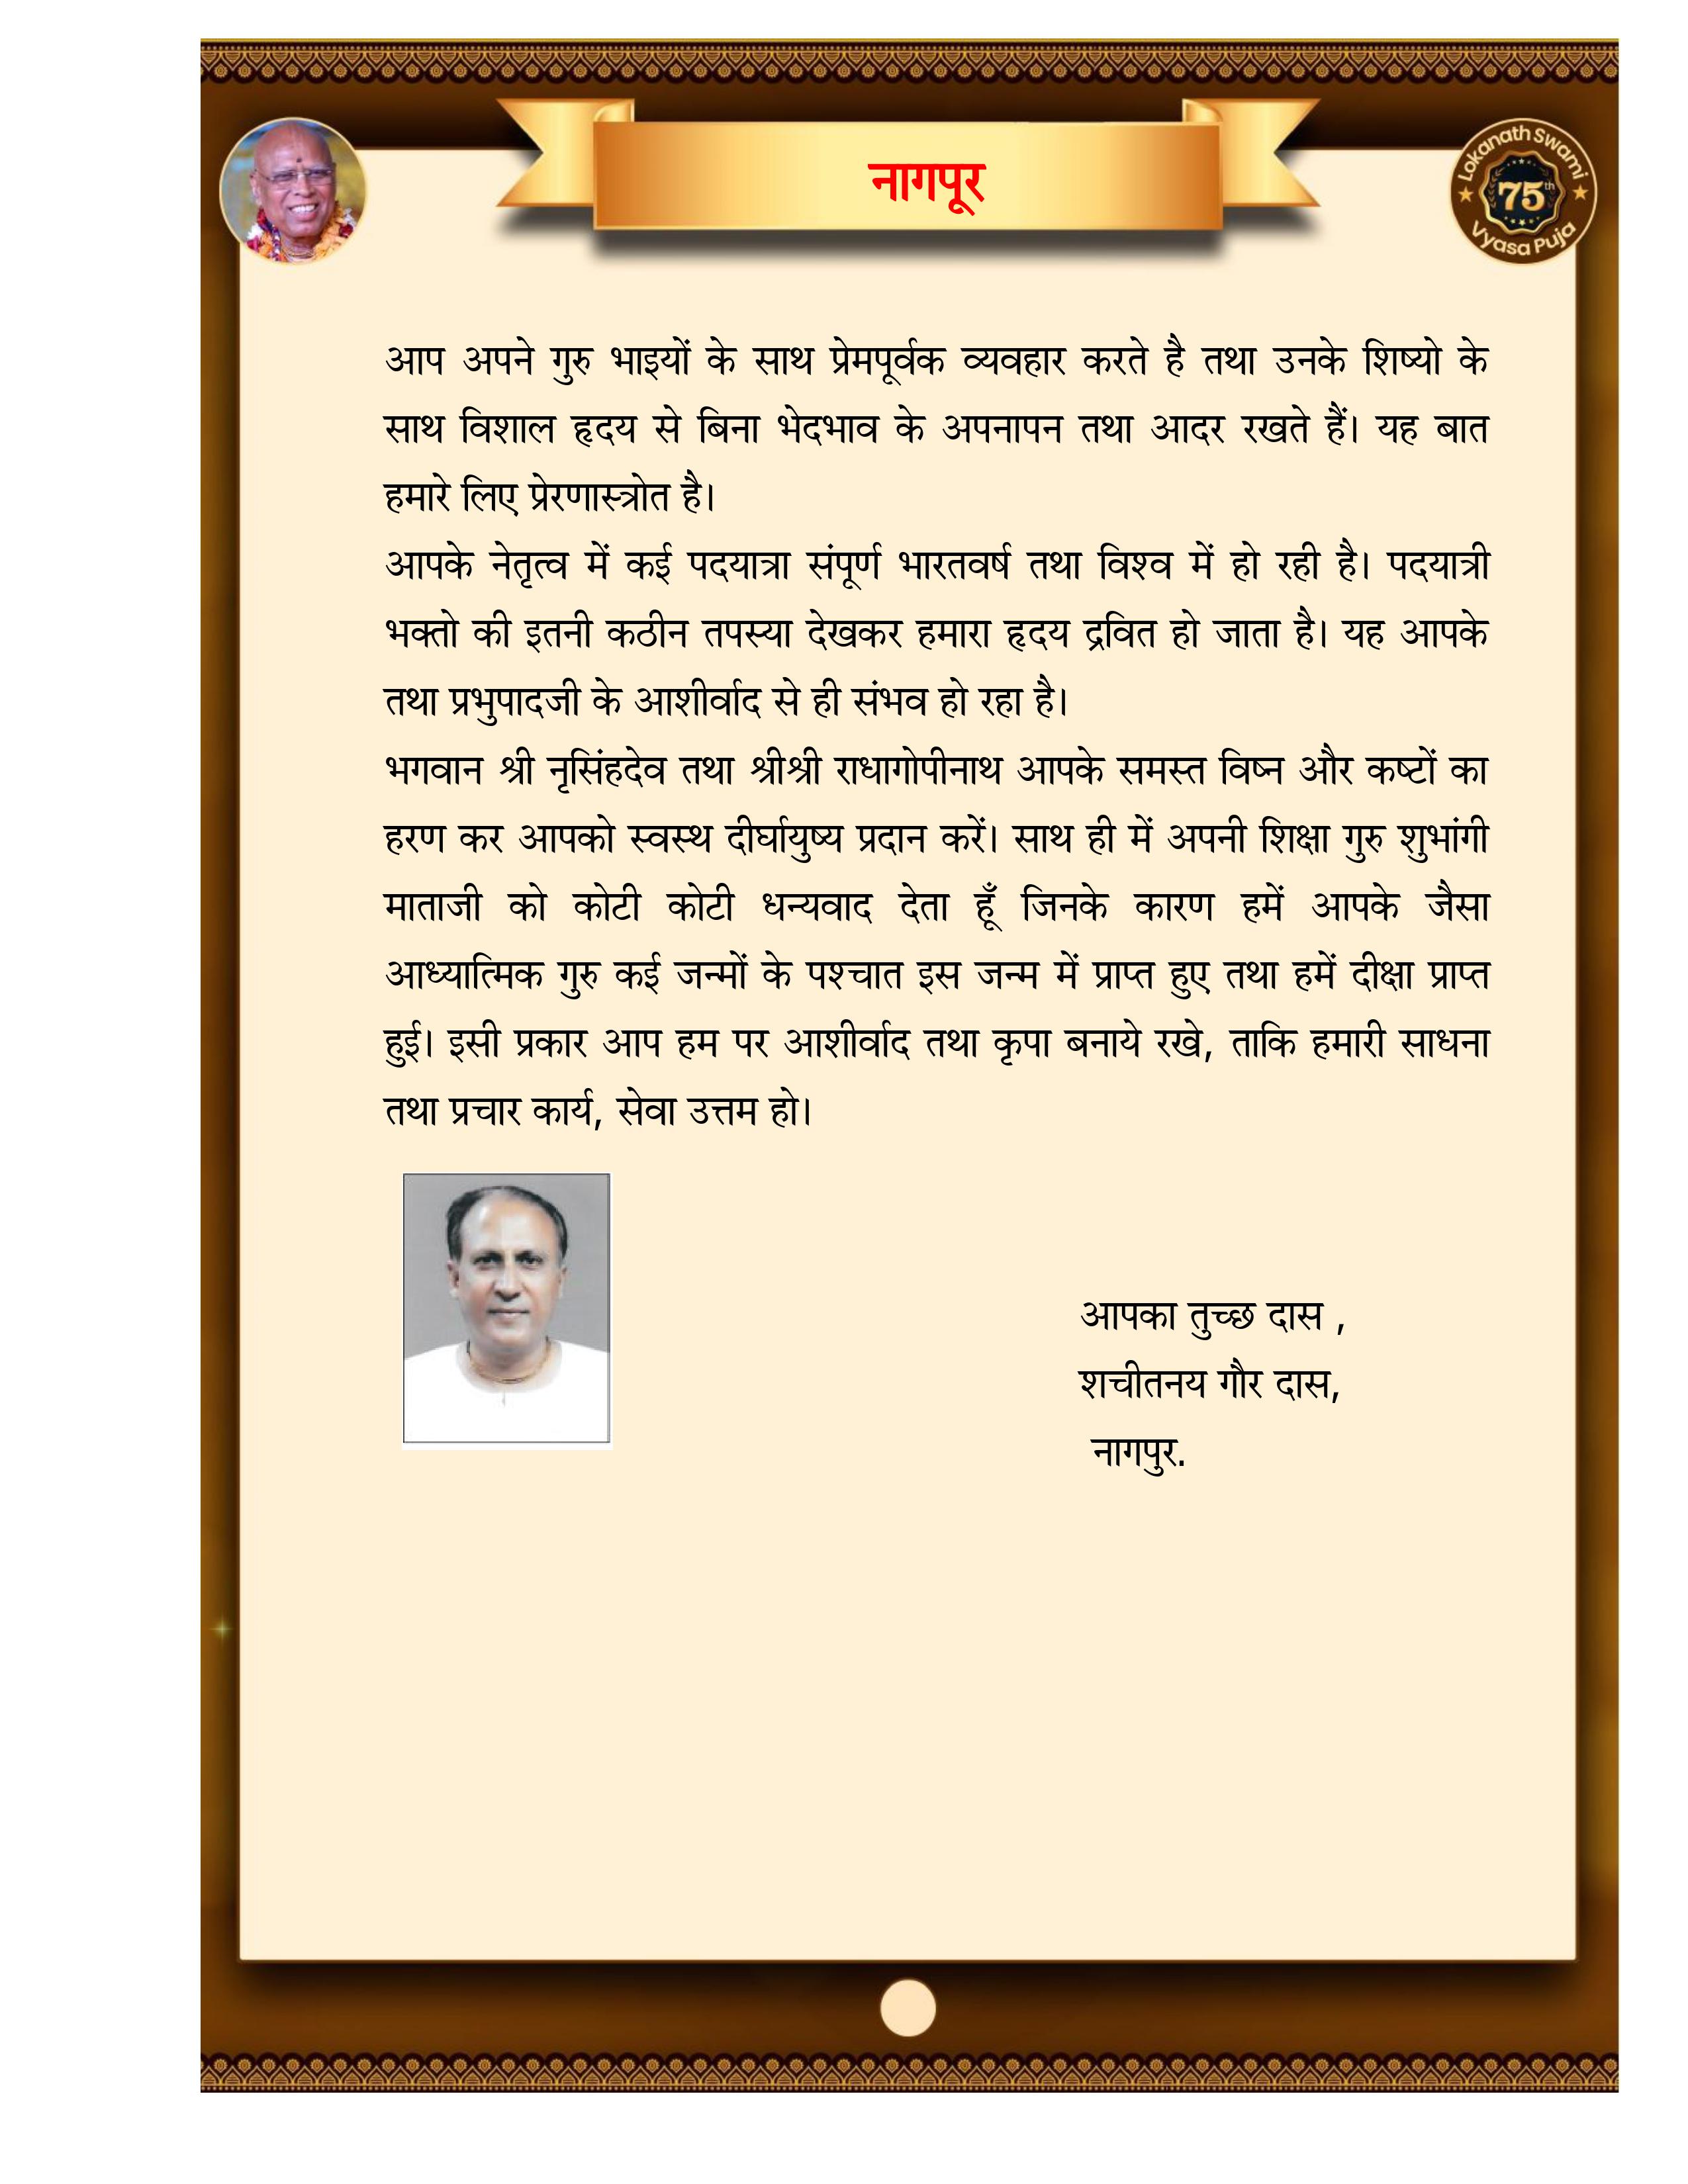 नागपूर
Lokanath Swami
75th
Vyasa Puja
आप अपने गुरु भाइयों के साथ प्रेमपूर्वक व्यवहार करते है तथा उनके शिष्यो के
साथ विशाल हृदय से बिना भेदभाव के अपनापन तथा आदर रखते हैं। यह बात
हमारे लिए प्रेरणास्त्रोत है।
आपके नेतृत्व में कई पदयात्रा संपूर्ण भारतवर्ष तथा विश्व में हो रही है। पदयात्री
भक्तो की इतनी कठीन तपस्या देखकर हमारा हृदय द्रवित हो जाता है। यह आपके
तथा प्रभुपादजी के आशीर्वाद से ही संभव हो रहा है।
भगवान श्री नृसिंहदेव तथा श्रीश्री राधागोपीनाथ आपके समस्त विष्न और कष्टों का
हरण कर आपको स्वस्थ दीर्घायुष्य प्रदान करें। साथ ही में अपनी शिक्षा गुरु शुभांगी
माताजी को कोटी कोटी धन्यवाद देता हूँ जिनके कारण हमें आपके जैसा
आध्यात्मिक गुरु कई जन्मों के पश्चात इस जन्म में प्राप्त हुए तथा हमें दीक्षा प्राप्त
हुई। इसी प्रकार आप हम पर आशीर्वाद तथा कृपा बनाये रखे, ताकि हमारी साधना
तथा प्रचार कार्य, सेवा उत्तम हो।
आपका तुच्छ दास ,
शचीतनय गौर दास,
नागपुर.